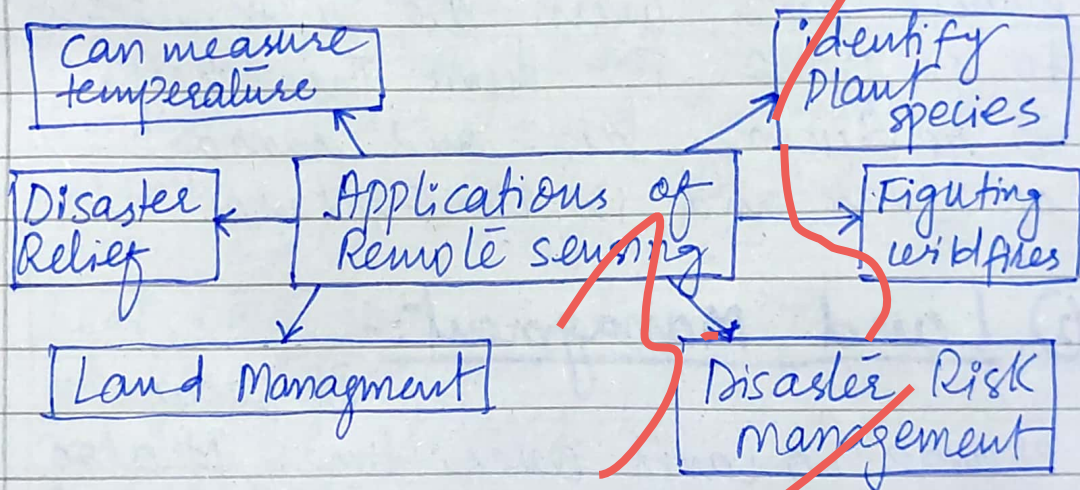 Can measure
temperature
identify
Plant
species
Disaster
Relief
Applications of
Remote sensing
Figuting
wildfires
Land Managment
Disaster Risk
management